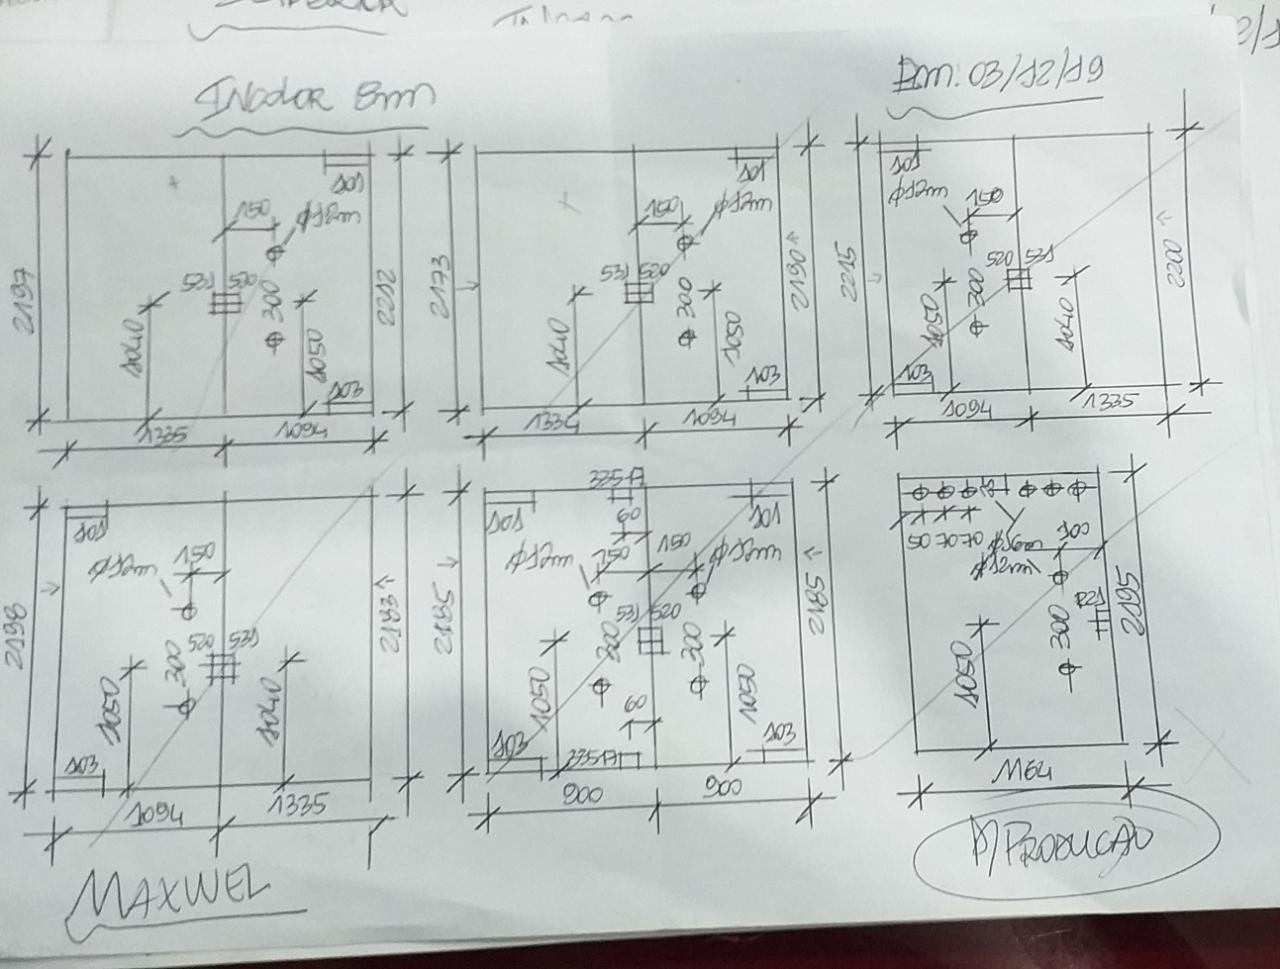 INCOLOR 8mm
Em: 03/12/19
2197
150
101
Ø12m
531 520
300
1040
1050
103
2212
1335
1094
2173
150
101
Ø12m
531 520
300
1040
1050
103
2190
1334
1094
2215
101
Ø12m
150
520 531
300
1050
1040
103
2200
1094
1335
2198
101
150
Ø12m
520 531
300
1050
1040
103
2183
1094
1335
2185
101
335A
60
101
150
150
Ø12m
Ø12m
531 520
300
300
1050
1050
60
103
335A
103
2185
900
900
50 70 70
Ø16m
100
Ø12m
300
1050
2195
1164
P/PRODUCAO
MAXWEL